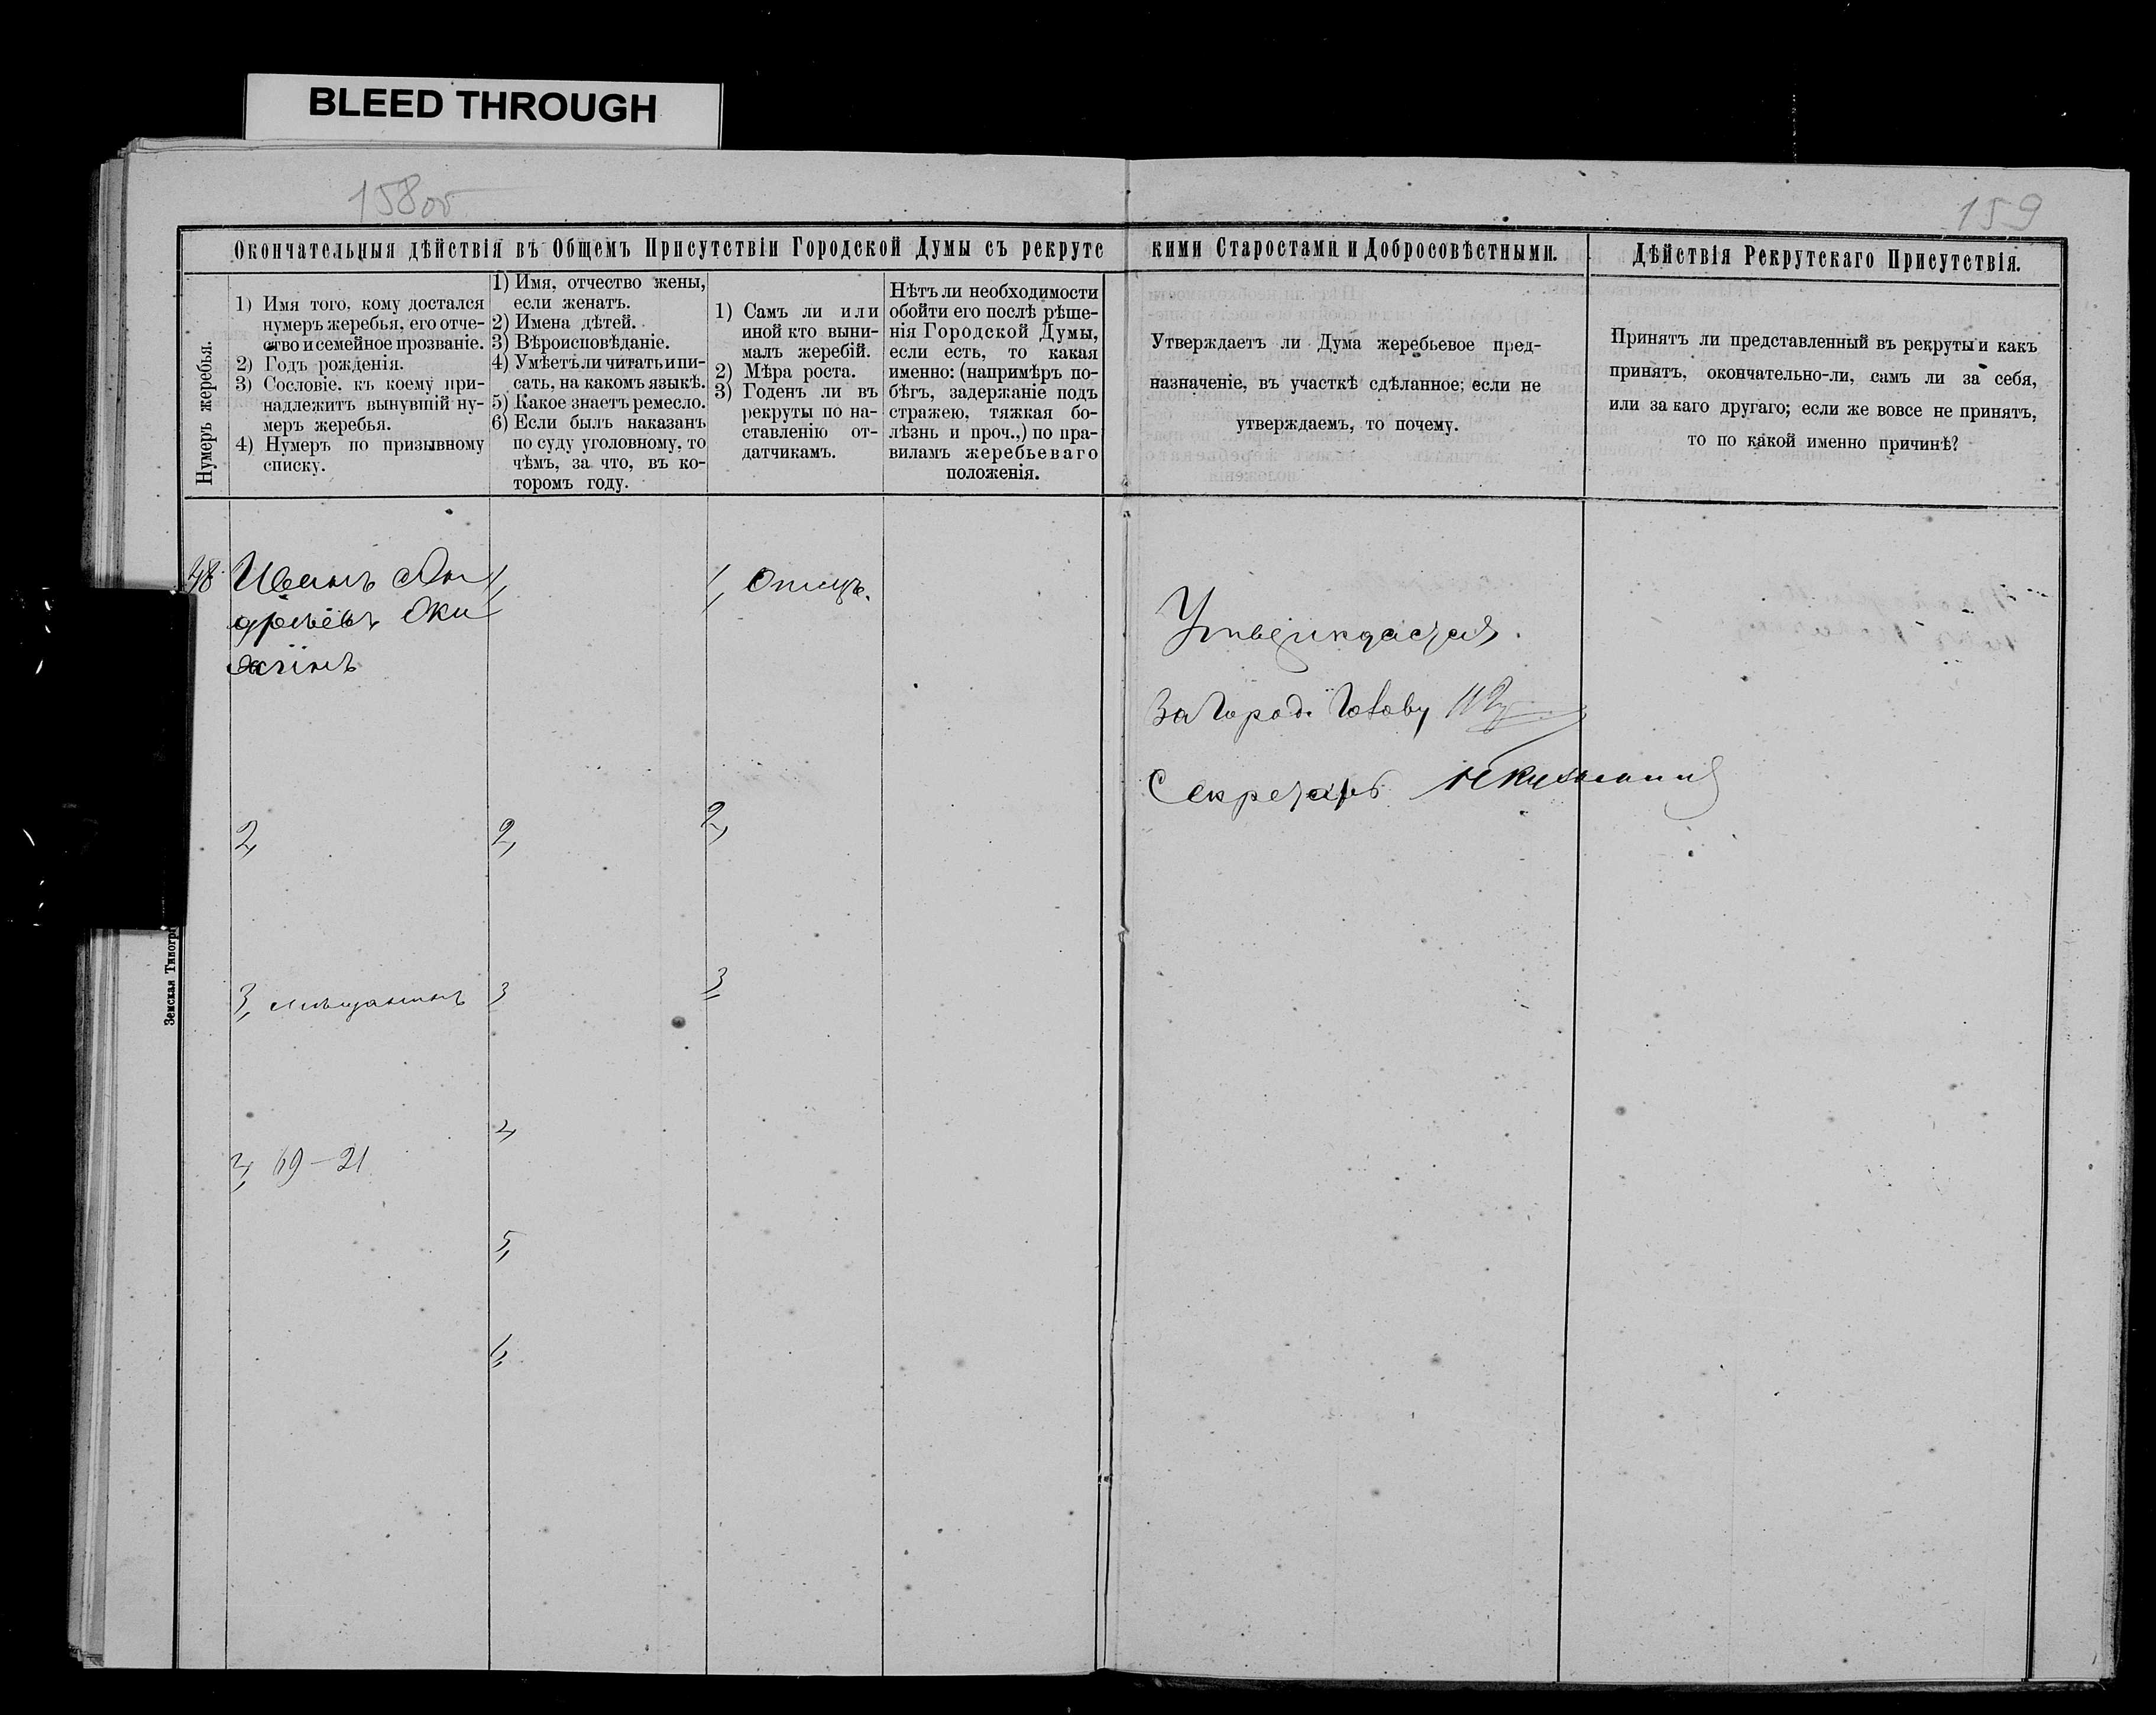 BLEED THROUGH
158 об
159
Окончательныя дѣйствія въ Общемъ Присутствіи Городской Думы съ рекрутс
кими Старостами и Добросовѣстными.
Дѣйствія Рекрутскаго Присутствія.
Нумеръ жеребья.
1) Имя того, кому достался
нумеръ жеребья, его отче-
ство и семейное прозваніе.
2) Годъ рожденія.
3) Сословіе, къ коему при-
надлежитъ вынувшій ну-
меръ жеребья.
4) Нумеръ по призывному
списку.
1) Имя, отчество жены,
если женатъ.
2) Имена дѣтей.
3) Вѣроисповѣданіе.
4) Умѣетъ ли читать и пи-
сать, на какомъ языкѣ.
5) Какое знаетъ ремесло.
6) Если былъ наказанъ
по суду уголовному, то
чѣмъ, за что, въ ко-
торомъ году.
1) Самъ ли или
иной кто выни-
малъ жеребій.
2) Мѣра роста.
3) Годенъ ли въ
рекруты по на-
ставленію от-
датчикамъ.
Нѣтъ ли необходимости
обойти его послѣ рѣше-
нія Городской Думы,
если есть, то какая
именно: (напримѣръ по-
бѣгъ, задержаніе подъ
стражею, тяжкая бо-
лѣзнь и проч.,) по пра-
виламъ жеребьеваго
положенія.
Утверждаетъ ли Дума жеребьевое пред-
назначеніе, въ участкѣ сдѣланное; если не
утверждаемъ, то почему.
Принятъ ли представленный въ рекруты и какъ
принятъ, окончательно-ли, самъ ли за себя,
или за каго другаго; если же вовсе не принятъ,
то по какой именно причинѣ?
48 Иванъ Ан
дреевъ
1,
1, Отецъ.
Утверждается.
За Город. Голову
Секретарь
2,
2,
2,
3, мѣщанинъ
3
3
4, 69-21
4
5,
6,
Земская Типогр